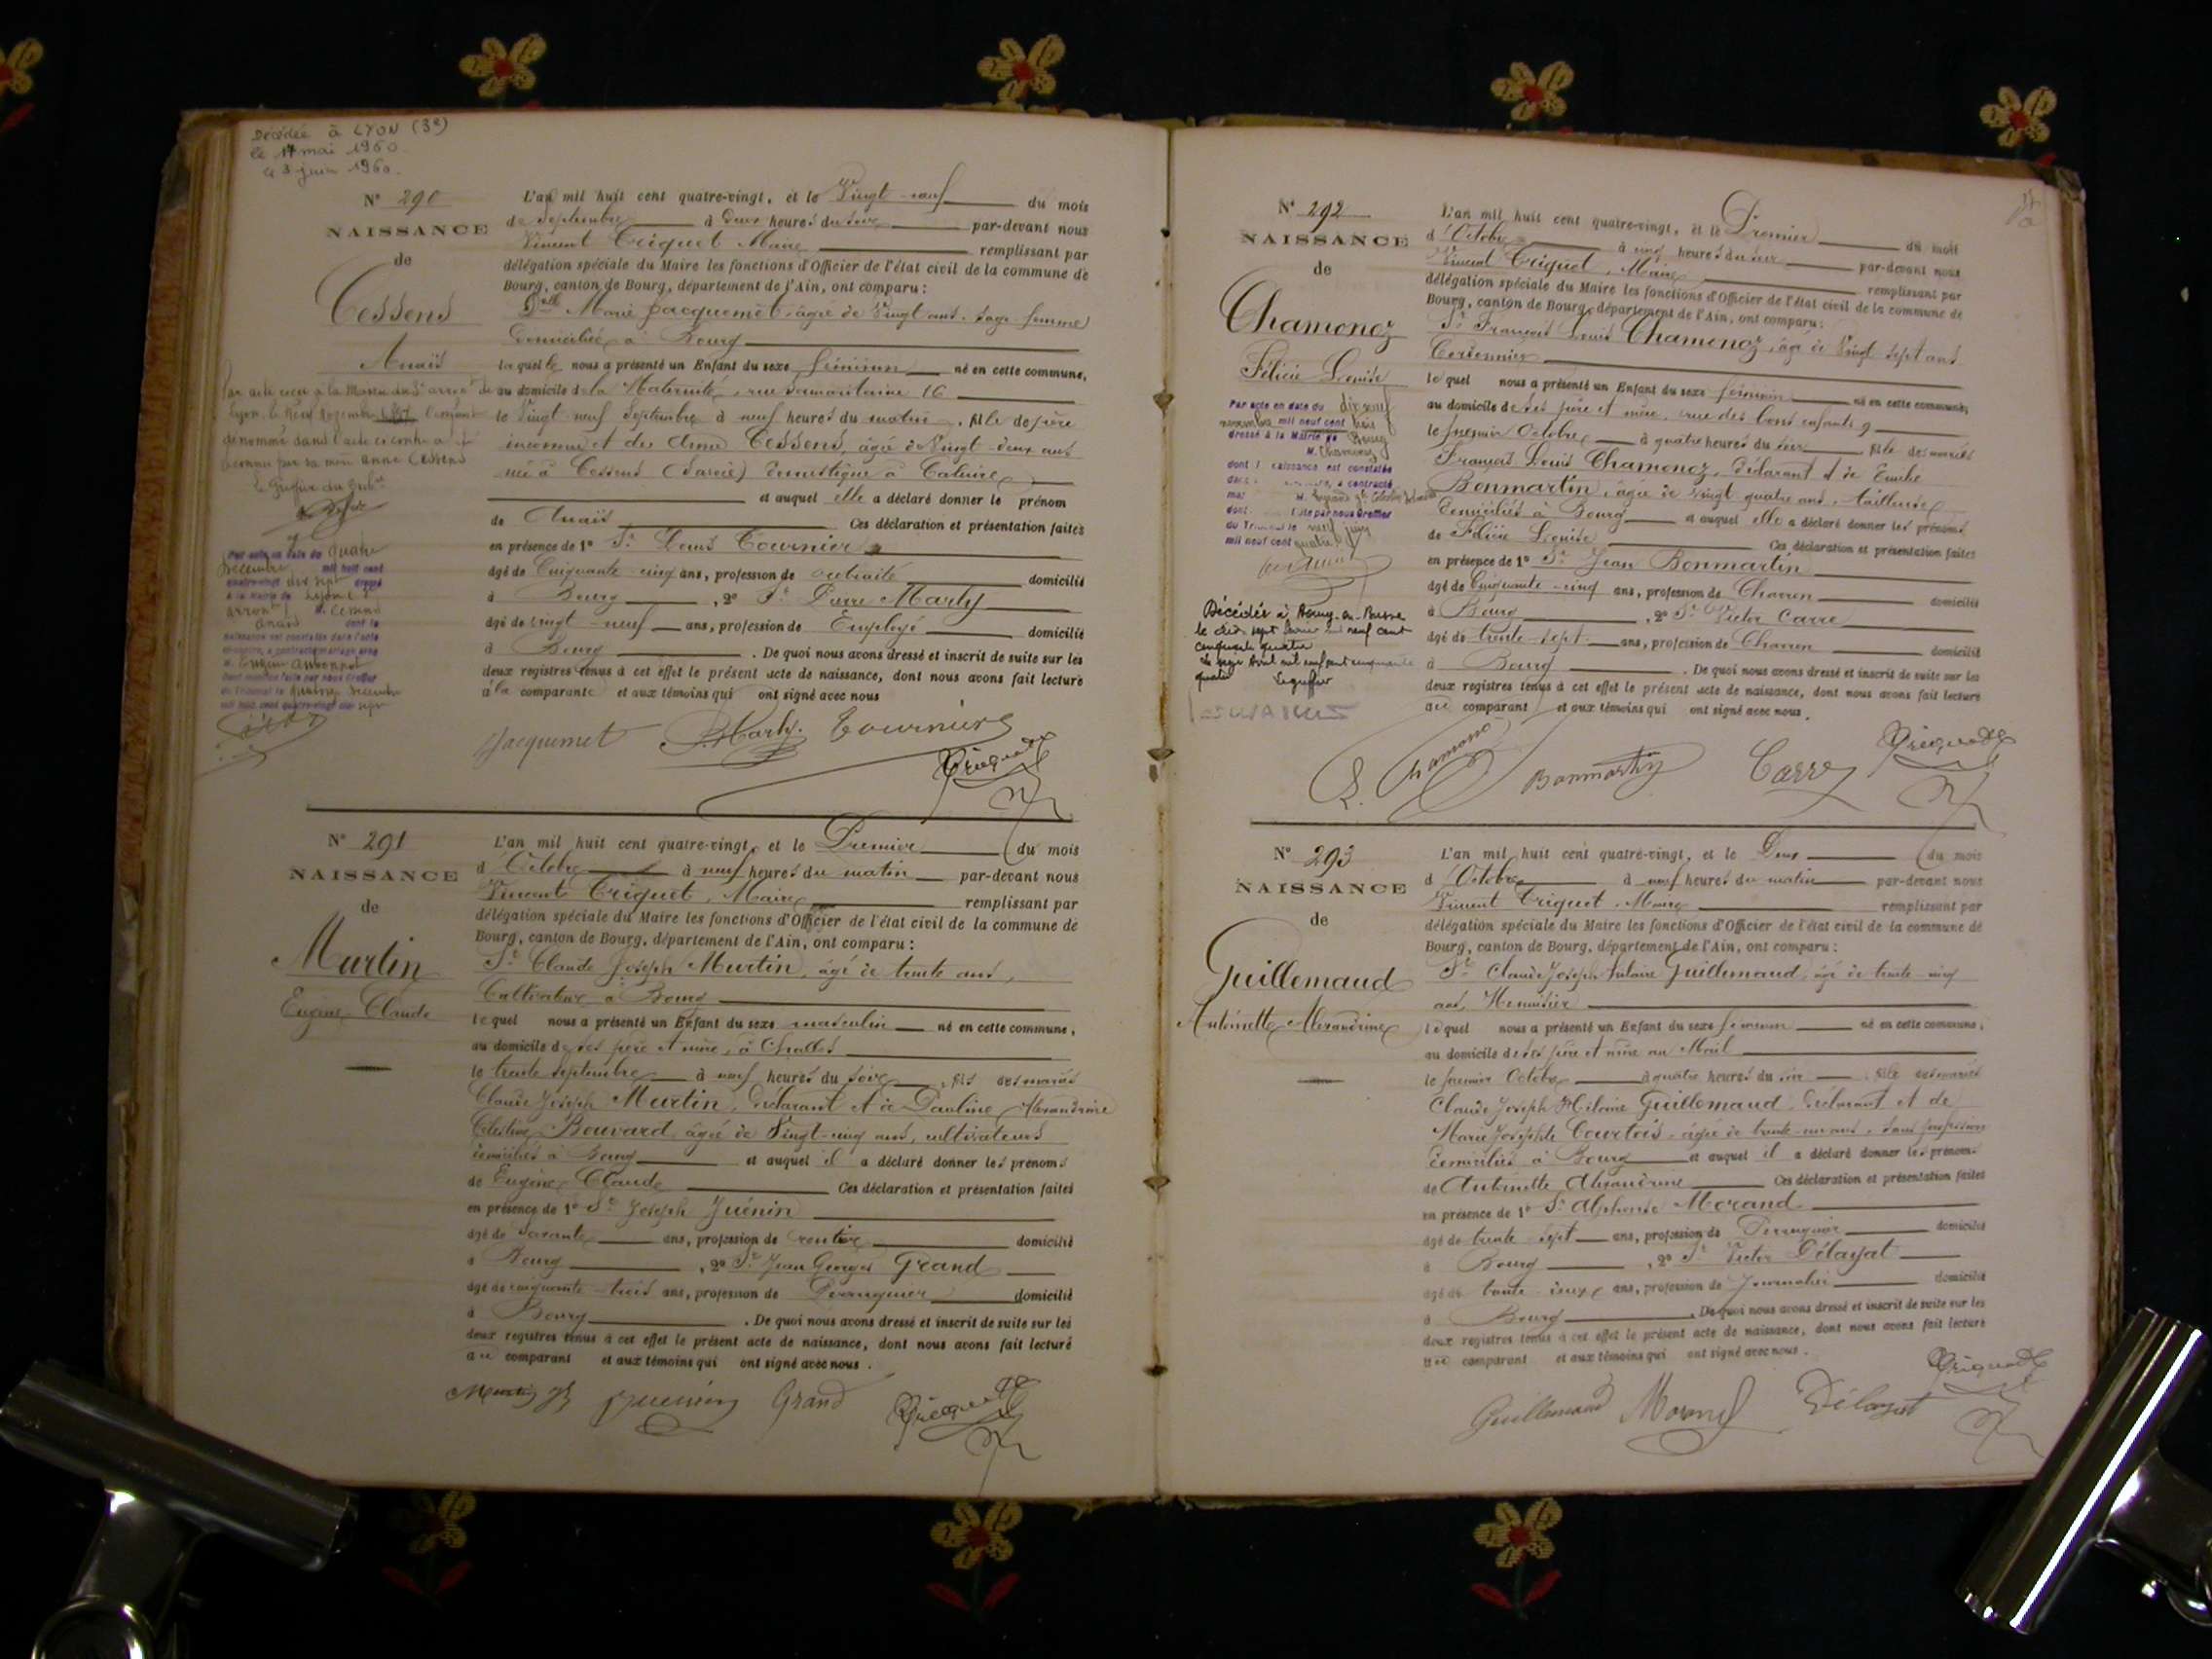 Décédée à LYON (3e)
le 17 mai 1960
le 3 juin 1960.
N° 290
NAISSANCE
de
Cessens
Anaïs
Par acte reçu à la Mairie du 3e arrondt de
Lyon, le neuf novembre l'enfant
dénommé dans l'acte ci-contre a été
reconnu par sa mère Anne Cessens
Le Greffier du
Par acte en date du quatre
décembre mil huit cent
quatre-vingt dix sept dressé
à la Mairie de Lyon
arront M. Cessens
Anaïs dont la
naissance est constatée dans l'acte
ci-contre, a contracté mariage avec
M. Eugène
dont mention faite par nous Greffier
du Tribunal le quatorze décembre
mil huit cent quatre-vingt dix sept
L'an mil huit cent quatre-vingt, et le Vingt-neuf du mois
de Septembre à deux heures du soir par-devant nous
Vincent Triquet Maire remplissant par
délégation spéciale du Maire les fonctions d'Officier de l'état civil de la commune de
Bourg, canton de Bourg, département de l'Ain, ont comparu :
Delle Marie Jacquemet, âgée de Vingt ans, sage femme
domiciliée à Bourg
laquelle nous a présenté un Enfant du sexe féminin né en cette commune,
au domicile de la Maternité, rue Samaritaine 16
le Vingt neuf Septembre à neuf heures du matin, fille de père
inconnu et de Anna Cessens, âgée de Vingt-deux ans
née à Cessens (Savoie) domestique à Caluire
et auquel elle a déclaré donner le prénom
de Anaïs Ces déclaration et présentation faites
en présence de 1° Sr Louis Tournier
âgé de Cinquante cinq ans, profession de retraité domicilié
à Bourg, 2° Sr Pierre Marty
âgé de vingt-neuf ans, profession de Employé domicilié
à Bourg. De quoi nous avons dressé et inscrit de suite sur les
deux registres tenus à cet effet le présent acte de naissance, dont nous avons fait lecture
à la comparante et aux témoins qui ont signé avec nous
Jacquemet P. Marty. Tournier
Triquet
N° 291
NAISSANCE
de
Murtin
Eugène Claude
L'an mil huit cent quatre-vingt, et le Premier du mois
d'Octobre à neuf heures du matin par-devant nous
Vincent Triquet, Maire remplissant par
délégation spéciale du Maire les fonctions d'Officier de l'état civil de la commune de
Bourg, canton de Bourg, département de l'Ain, ont comparu :
Sr Claude Joseph Murtin, âgé de trente ans,
Cultivateur à Bourg
lequel nous a présenté un Enfant du sexe masculin né en cette commune,
au domicile de ses père et mère, à Challes
le trente septembre à neuf heures du soir, fils des mariés
Claude Joseph Murtin, déclarant et de Pauline Alexandrine
Célestine Bouvard âgée de Vingt-cinq ans, cultivateurs
domiciliés à Bourg et auquel il a déclaré donner les prénoms
de Eugène Claude Ces déclaration et présentation faites
en présence de 1° Sr Joseph Juénin
âgé de Soixante ans, profession de rentier domicilié
à Bourg, 2° Sr Jean Georges Grand
âgé de cinquante-trois ans, profession de Perruquier domicilié
à Bourg. De quoi nous avons dressé et inscrit de suite sur les
deux registres tenus à cet effet le présent acte de naissance, dont nous avons fait lecture
au comparant et aux témoins qui ont signé avec nous.
Murtin Juénin Grand Triquet
N° 292
NAISSANCE
de
Chamonoz
Félicie Louise
Par acte en date du dix neuf
novembre mil neuf cent trois
dressé à la Mairie de Bourg
M. Chamonoz
dont la naissance est constatée
a contracté
M.
dont faite par nous Greffier
du Tribunal le neuf juin
mil neuf cent quatre
Décédée à Bourg-en-Bresse
le dix sept février mil neuf cent
cinquante quatre
Le seize avril mil neuf cent cinquante
quatre Le greffier
L'an mil huit cent quatre-vingt, et le Premier du mois
d'Octobre à cinq heures du soir par-devant nous
Vincent Triquet, Maire remplissant par
délégation spéciale du Maire les fonctions d'Officier de l'état civil de la commune de
Bourg, canton de Bourg, département de l'Ain, ont comparu :
Sr François Louis Chamonoz, âgé de Vingt sept ans
Cordonnier
lequel nous a présenté un Enfant du sexe féminin né en cette commune,
au domicile de ses père et mère, rue des bons enfants 9
le premier Octobre à quatre heures du soir fille des mariés
François Louis Chamonoz, déclarant et de Emilie
Bonmartin, âgée de vingt quatre ans, tailleuse
domiciliés à Bourg et auquel elle a déclaré donner les prénoms
de Félicie Louise Ces déclaration et présentation faites
en présence de 1° Sr Jean Bonmartin
âgé de Cinquante-cinq ans, profession de Charron domicilié
à Bourg, 2° Sr Victor Carre
âgé de trente-sept ans, profession de Charron domicilié
à Bourg. De quoi nous avons dressé et inscrit de suite sur les
deux registres tenus à cet effet le présent acte de naissance, dont nous avons fait lecture
au comparant et aux témoins qui ont signé avec nous.
L. Chamono Bonmartin Carre Triquet
N° 293
NAISSANCE
de
Guillemaud
Antoinette Alexandrine
L'an mil huit cent quatre-vingt, et le Deux du mois
d'Octobre à neuf heures du matin par-devant nous
Vincent Triquet, Maire remplissant par
délégation spéciale du Maire les fonctions d'Officier de l'état civil de la commune de
Bourg, canton de Bourg, département de l'Ain, ont comparu :
Sr Claude Joseph Hilaire Guillemaud, âgé de trente-cinq
ans, Menuisier
lequel nous a présenté un Enfant du sexe féminin né en cette commune,
au domicile de ses père et mère au Mail
le premier Octobre à quatre heures du soir fille des mariés
Claude Joseph Hilaire Guillemaud, déclarant et de
Marie Josephte Courtois, âgée de trente-un ans, sans profession
domiciliés à Bourg et auquel il a déclaré donner les prénoms
de Antoinette Alexandrine Ces déclaration et présentation faites
en présence de 1° Sr Alphonse Morand
âgé de trente sept ans, profession de Perruquier domicilié
à Bourg, 2° Sr Victor Délayat
âgé de trente-deux ans, profession de Journalier domicilié
à Bourg. De quoi nous avons dressé et inscrit de suite sur les
deux registres tenus à cet effet le présent acte de naissance, dont nous avons fait lecture
au comparant et aux témoins qui ont signé avec nous.
Guillemaud Morand Délayat Triquet